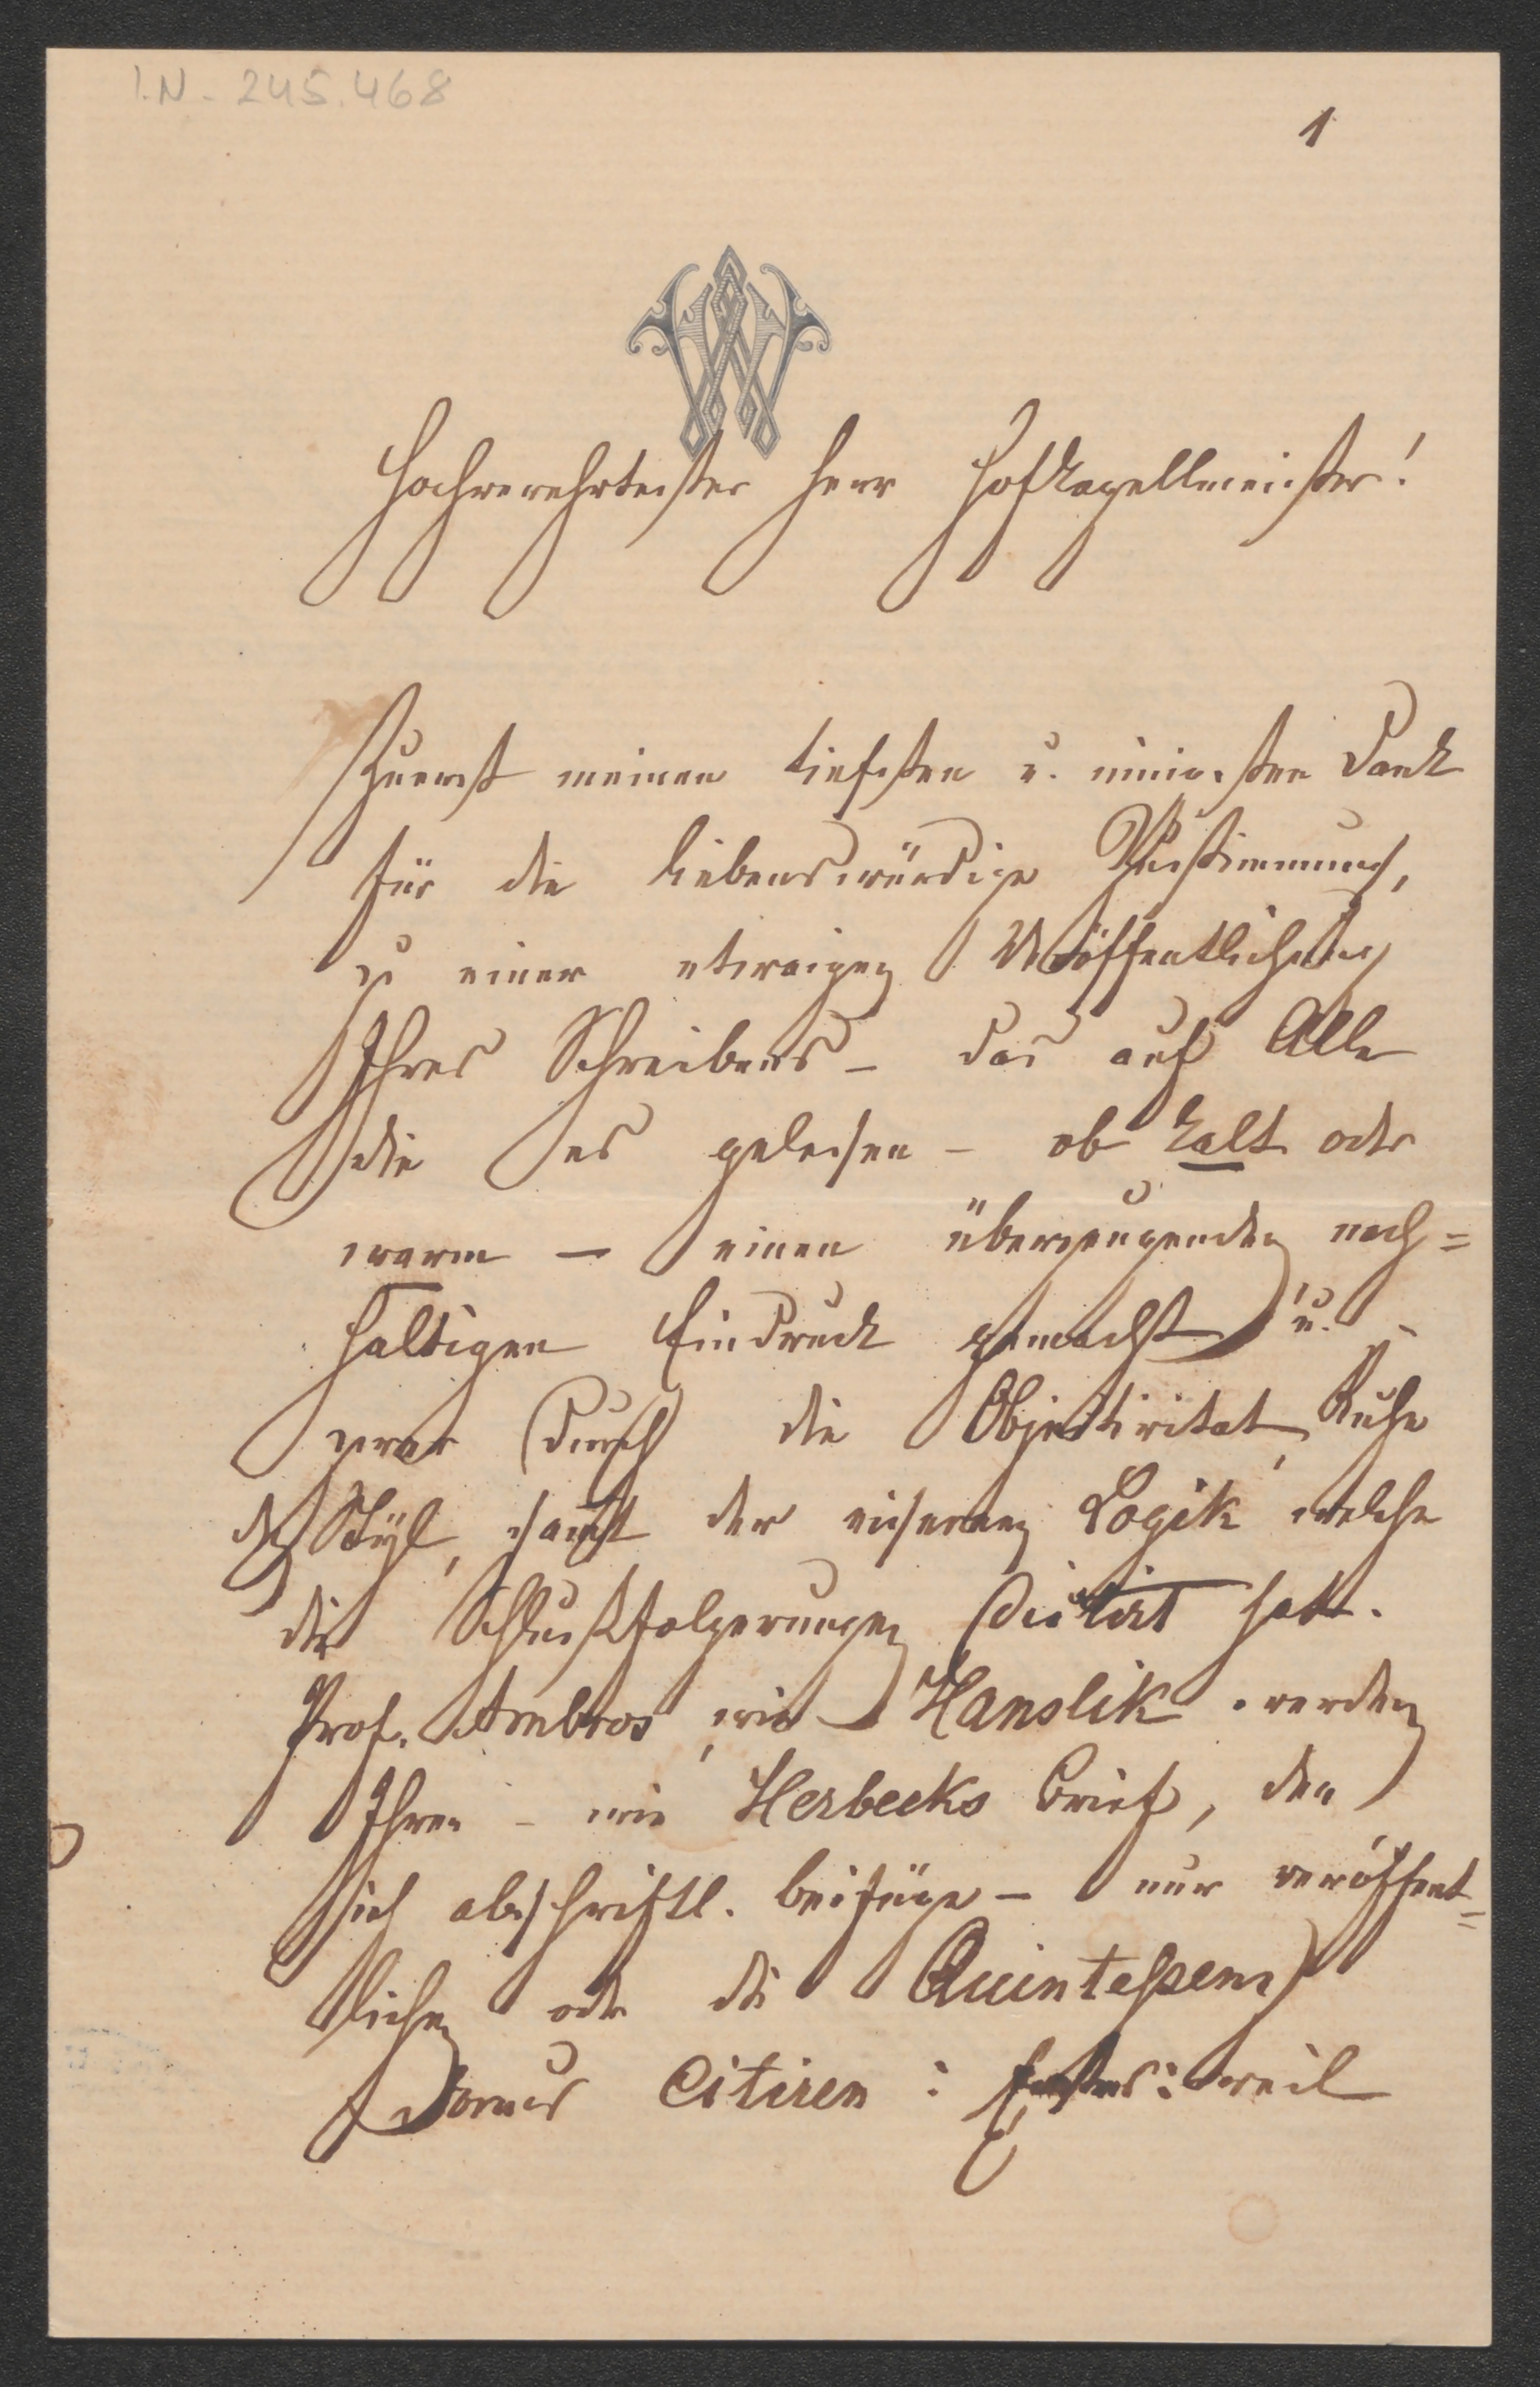 I.N. 245.468
1
Hochverehrtester Herr Hofkapellmeister!
Zuerst meinen tiefsten u. innigsten Dank
für die liebenswürdige Zustimmung,
zu einer etwaigen Veröffentlichung
Ihres Schreibens – das auf Alle
die es gelesen – ob kalt oder
warm – einen überzeugenden nach=
haltigen Eindruck gemacht u.
zwar durch die Objectivität, Ruhe
Styl, sammt der eisernen Logik welche
die Schlußfolgerungen dictirt hat.
Prof. Ambros, wie Hanslik werden
Ihren – wie Herbecks Brief, den
ich abschriftl. beifüge – nur veröffent=
lichen oder die Quintessenz
daraus citiren: Erstes: weil